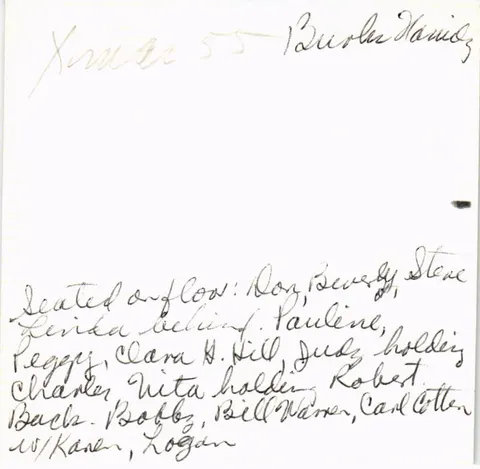 Xmas 55
Seated on floor: Don, Beverly, Steve
Linda behind. Pauline,
Peggy, Clara H. Hill, Judy holding
Charles Nita holding Robert.
Back. Bobby, Bill Warren, Carl Cotten
w/Karen, Logan